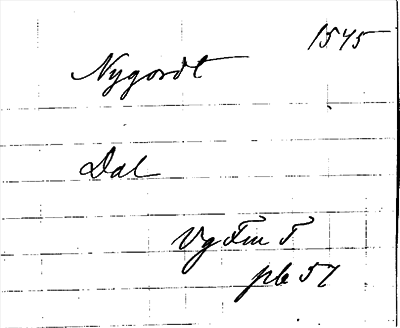 1545
Nygordt
Dal
Vg Fm T.
pb 57